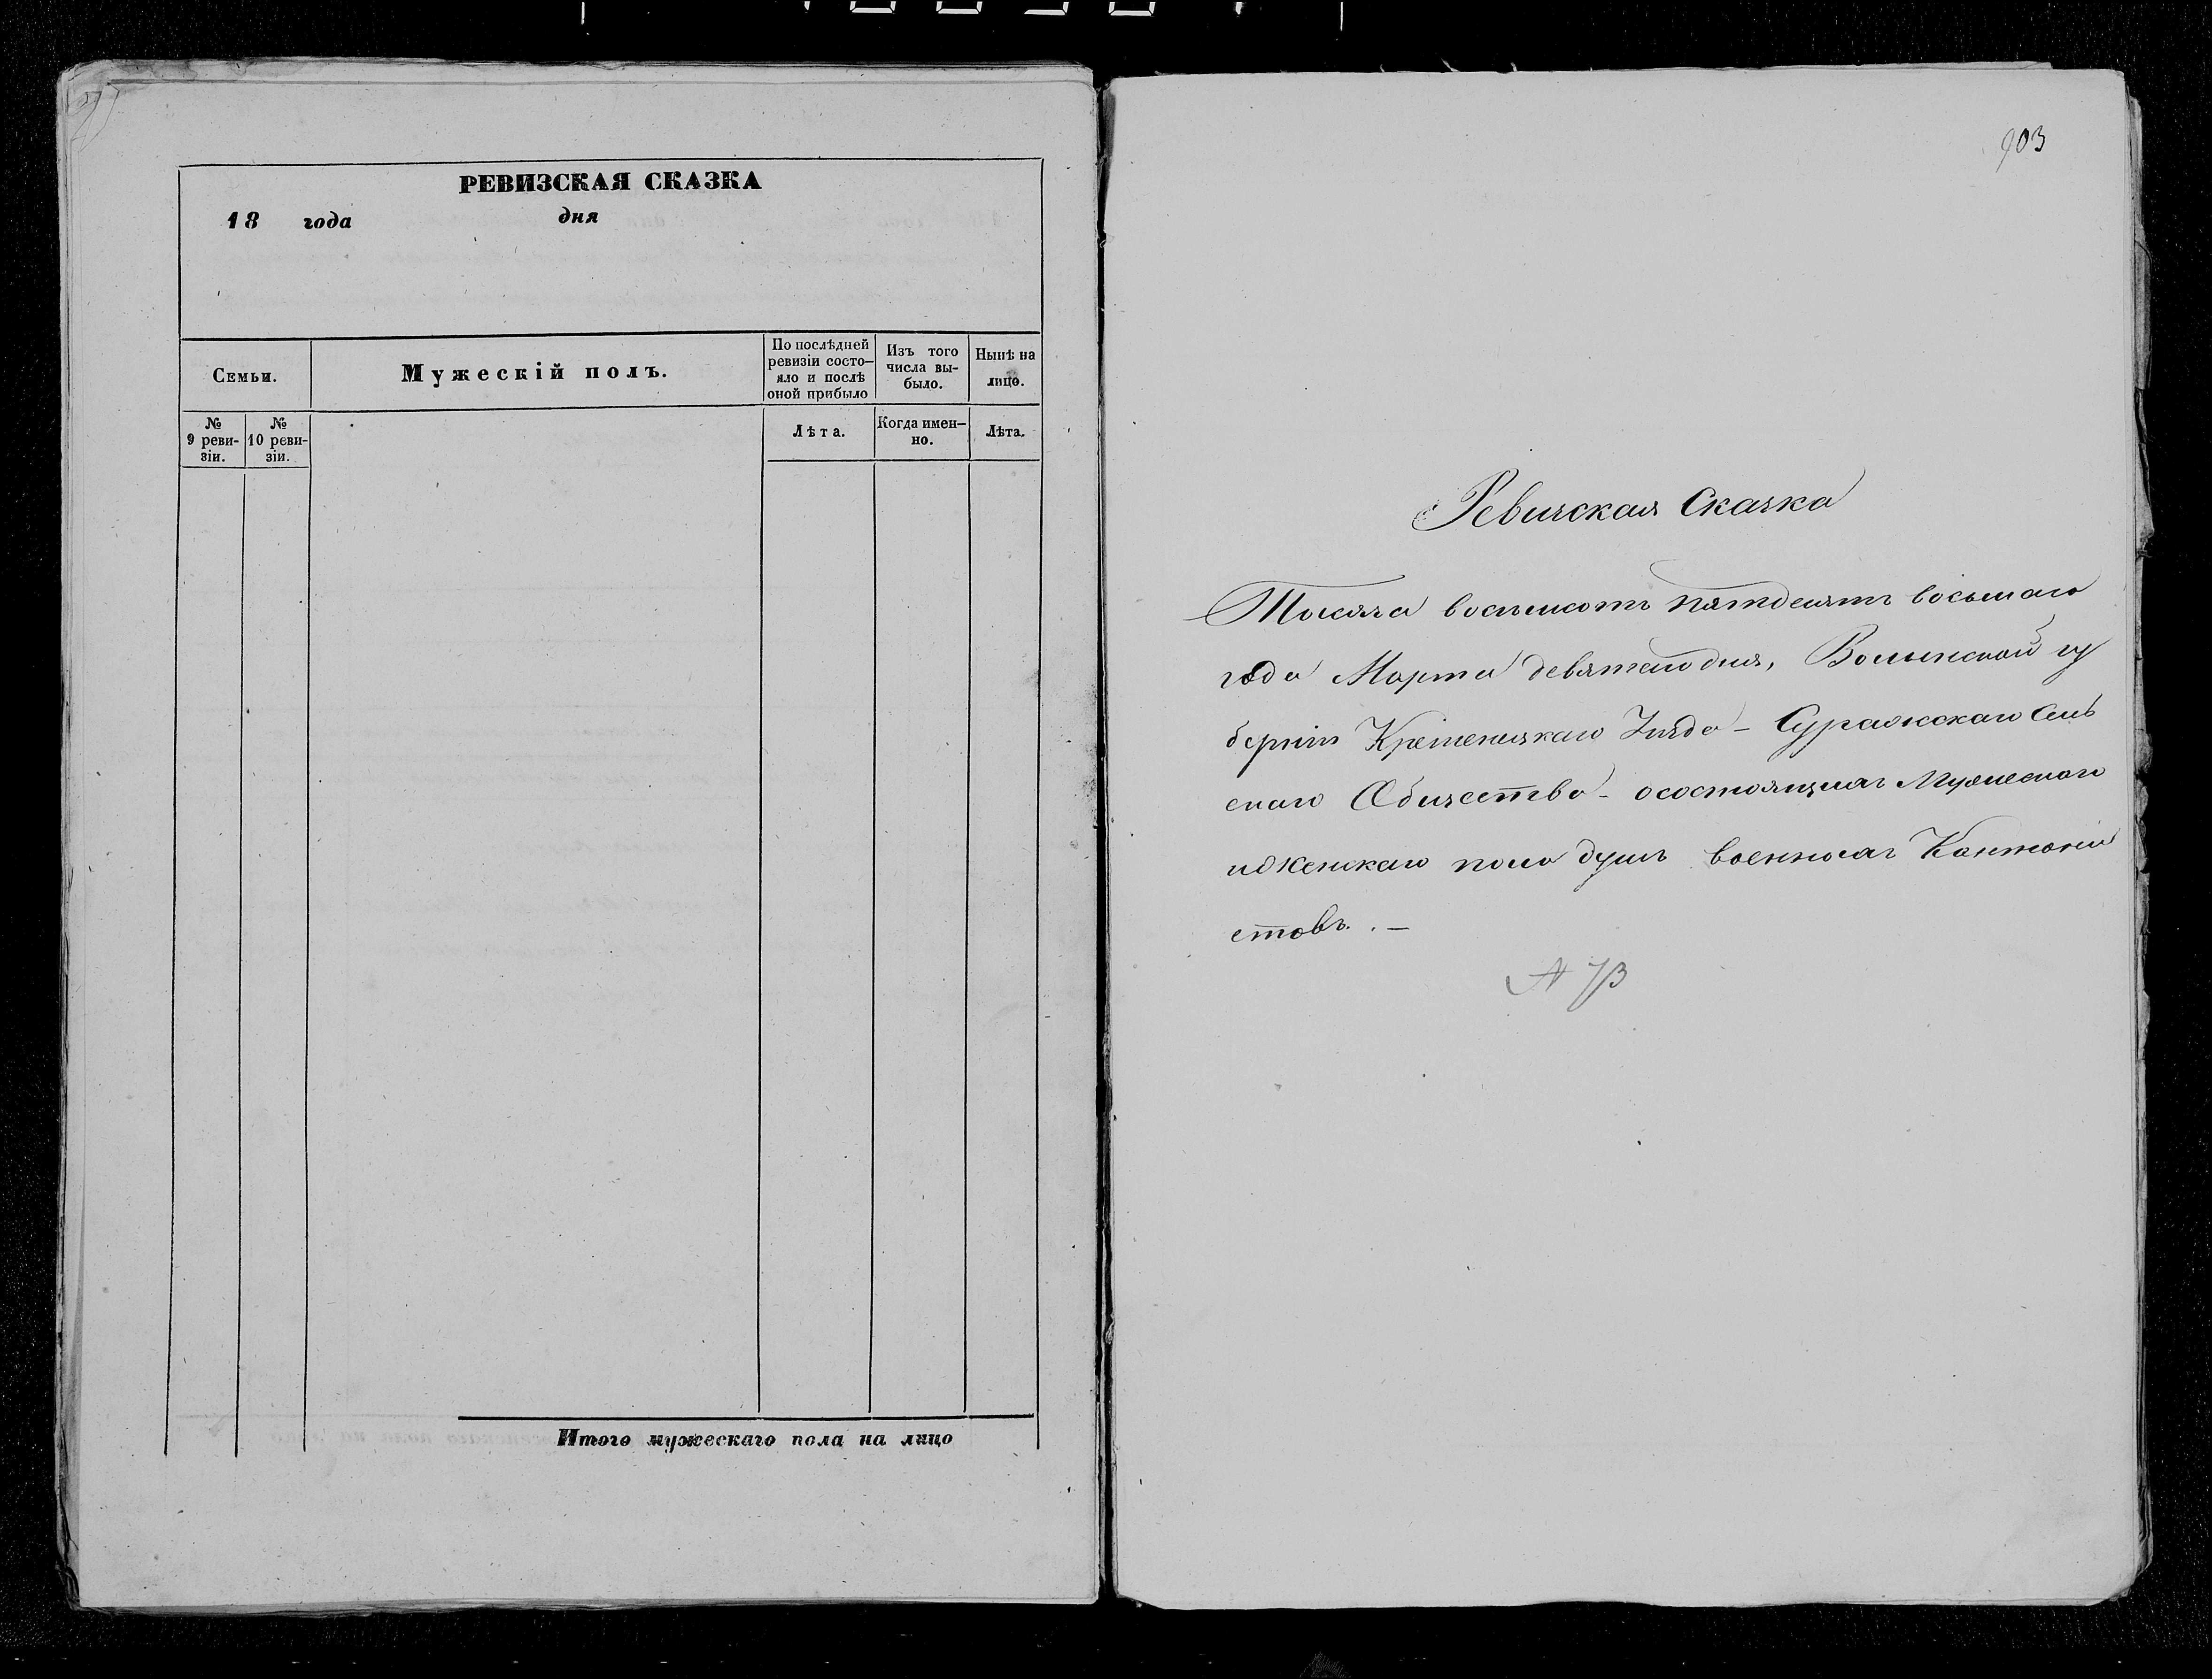 РЕВИЗСКАЯ СКАЗКА
18 года дня
Семьи.
Мужескій полъ.
По послѣдней
ревизіи состо-
яло и послѣ
оной прибыло
Изъ того
числа вы-
было.
Нынѣ на
лицо.
№
9 реви-
зіи.
№
10 реви-
зіи.
Лѣта.
Когда имен-
но.
Лѣта.
Итого мужескаго пола на лицо
903
Ревизская Сказка
Тысяча восемсотъ пятдесятъ восьмаго
года Марта девятаго дня, Волынской гу
берніи Кременецкаго Уѣзда - Суражскаго Сель
скаго Общества - о состоящихъ Мужескаго
и женскаго пола душъ военныхъ Кантони
стовъ. . —
№ 73